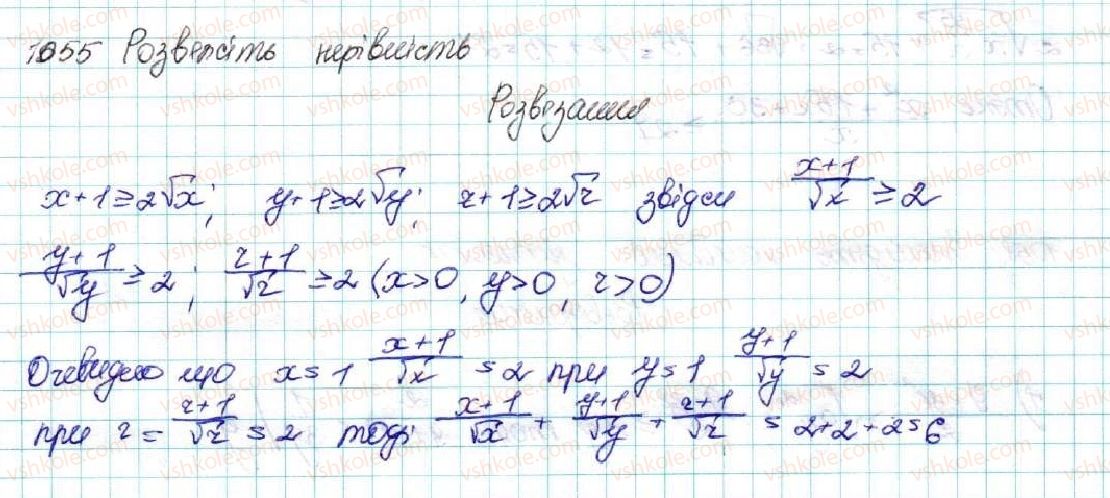 1055 Розвяжіть нерівність
Розвязання
x+1≥2√x; y+1≥2√y; z+1≥2√z звідси (x+1)/√x ≥2
(y+1)/√y ≥2; (z+1)/√z ≥2 (x>0, y>0, z>0)
Очевидно що x=1 (x+1)/√x =2 при y=1 (y+1)/√y =2
при z= (z+1)/√z =2 тоді (x+1)/√x + (y+1)/√y + (z+1)/√z =2+2+2=6